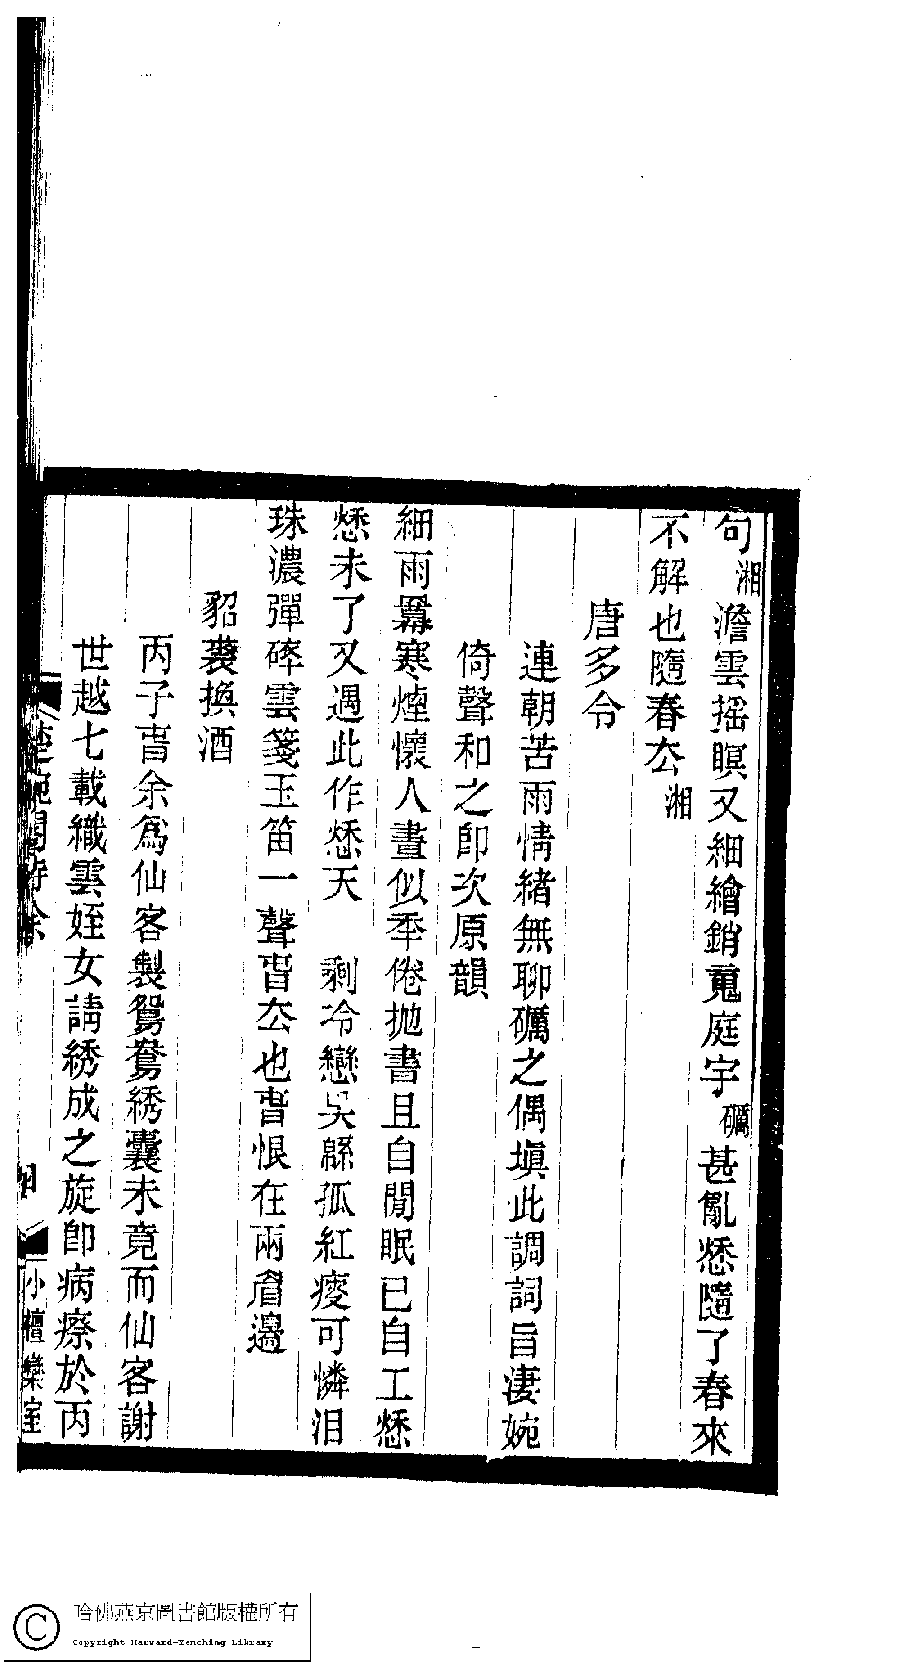 句湘澹雲摇瞑又細繪銷䰟庭宇礪甚亂愁隨了春來
不解也隨春厺湘
唐多令
連朝苦雨情緒無聊礪之偶塡此調詞旨淒婉
倚聲和之卽次原韻
細雨羃寒煙懷人晝似年倦抛書且自閒眠已自工愁
愁未了又遇此作愁天　剩冷戀吳緜孤紅瘦可憐泪
珠濃彈碎雲箋玉笛一聲旹厺也旹恨在兩眉邊
貂裘換酒
丙子旹余爲仙客製鴛鴦綉囊未竟而仙客謝
世越七載織雲姪女請綉成之旋卽病瘵於丙
小檀欒室
哈佛燕京圖書館版權所有
Copyright Harvard-Yenching Library